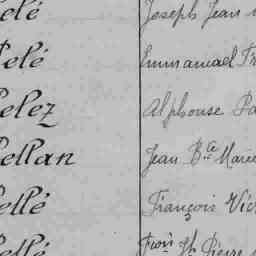 elé Joseph Jean
Pelé Emmanuel Fr
Pelez Alphonse Pa
Pellan Jean B.te Marie
ellé François Vic
ellé Fçois Ht Pierre